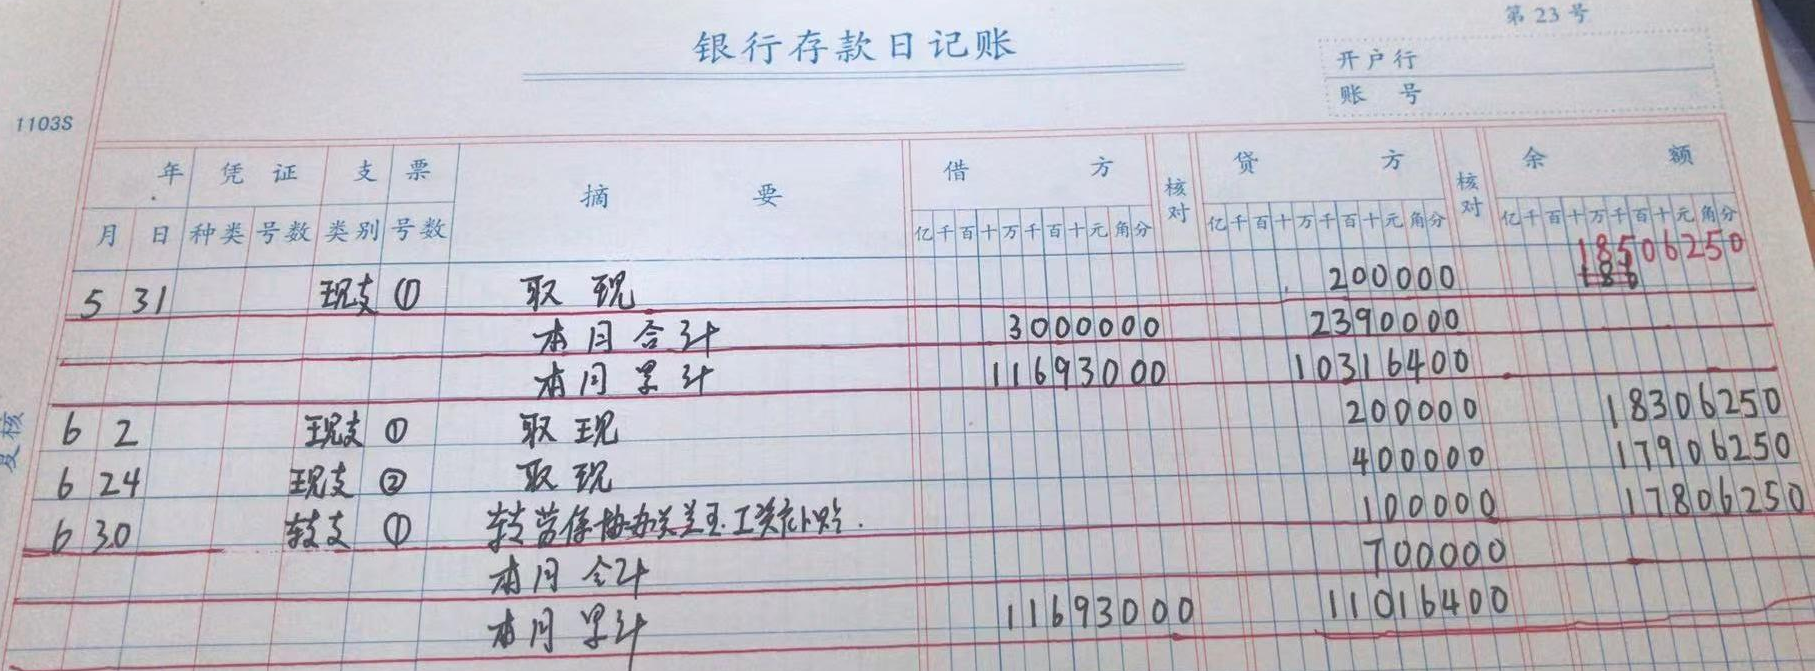 第 23 号
银行存款日记账
开户行
账 号
1103S
年 凭证 支票 摘要 借方 核对 贷方 核对 余额
月 日 种类 号数 类别 号数 亿千百十万千百十元角分 亿千百十万千百十元角分 亿千百十万千百十元角分
18506250
5 31 现支 ① 取现 200000 186
本月合计 3000000 2390000
本月累计 11693000 10316400
6 2 现支 ① 取现 200000 18306250
6 24 现支 ② 取现 400000 17906250
6 30 转支 ① 转营保协办关兰玉工资补贴. 100000 17806250
本月合计 700000
本月累计 11693000 11016400
复核